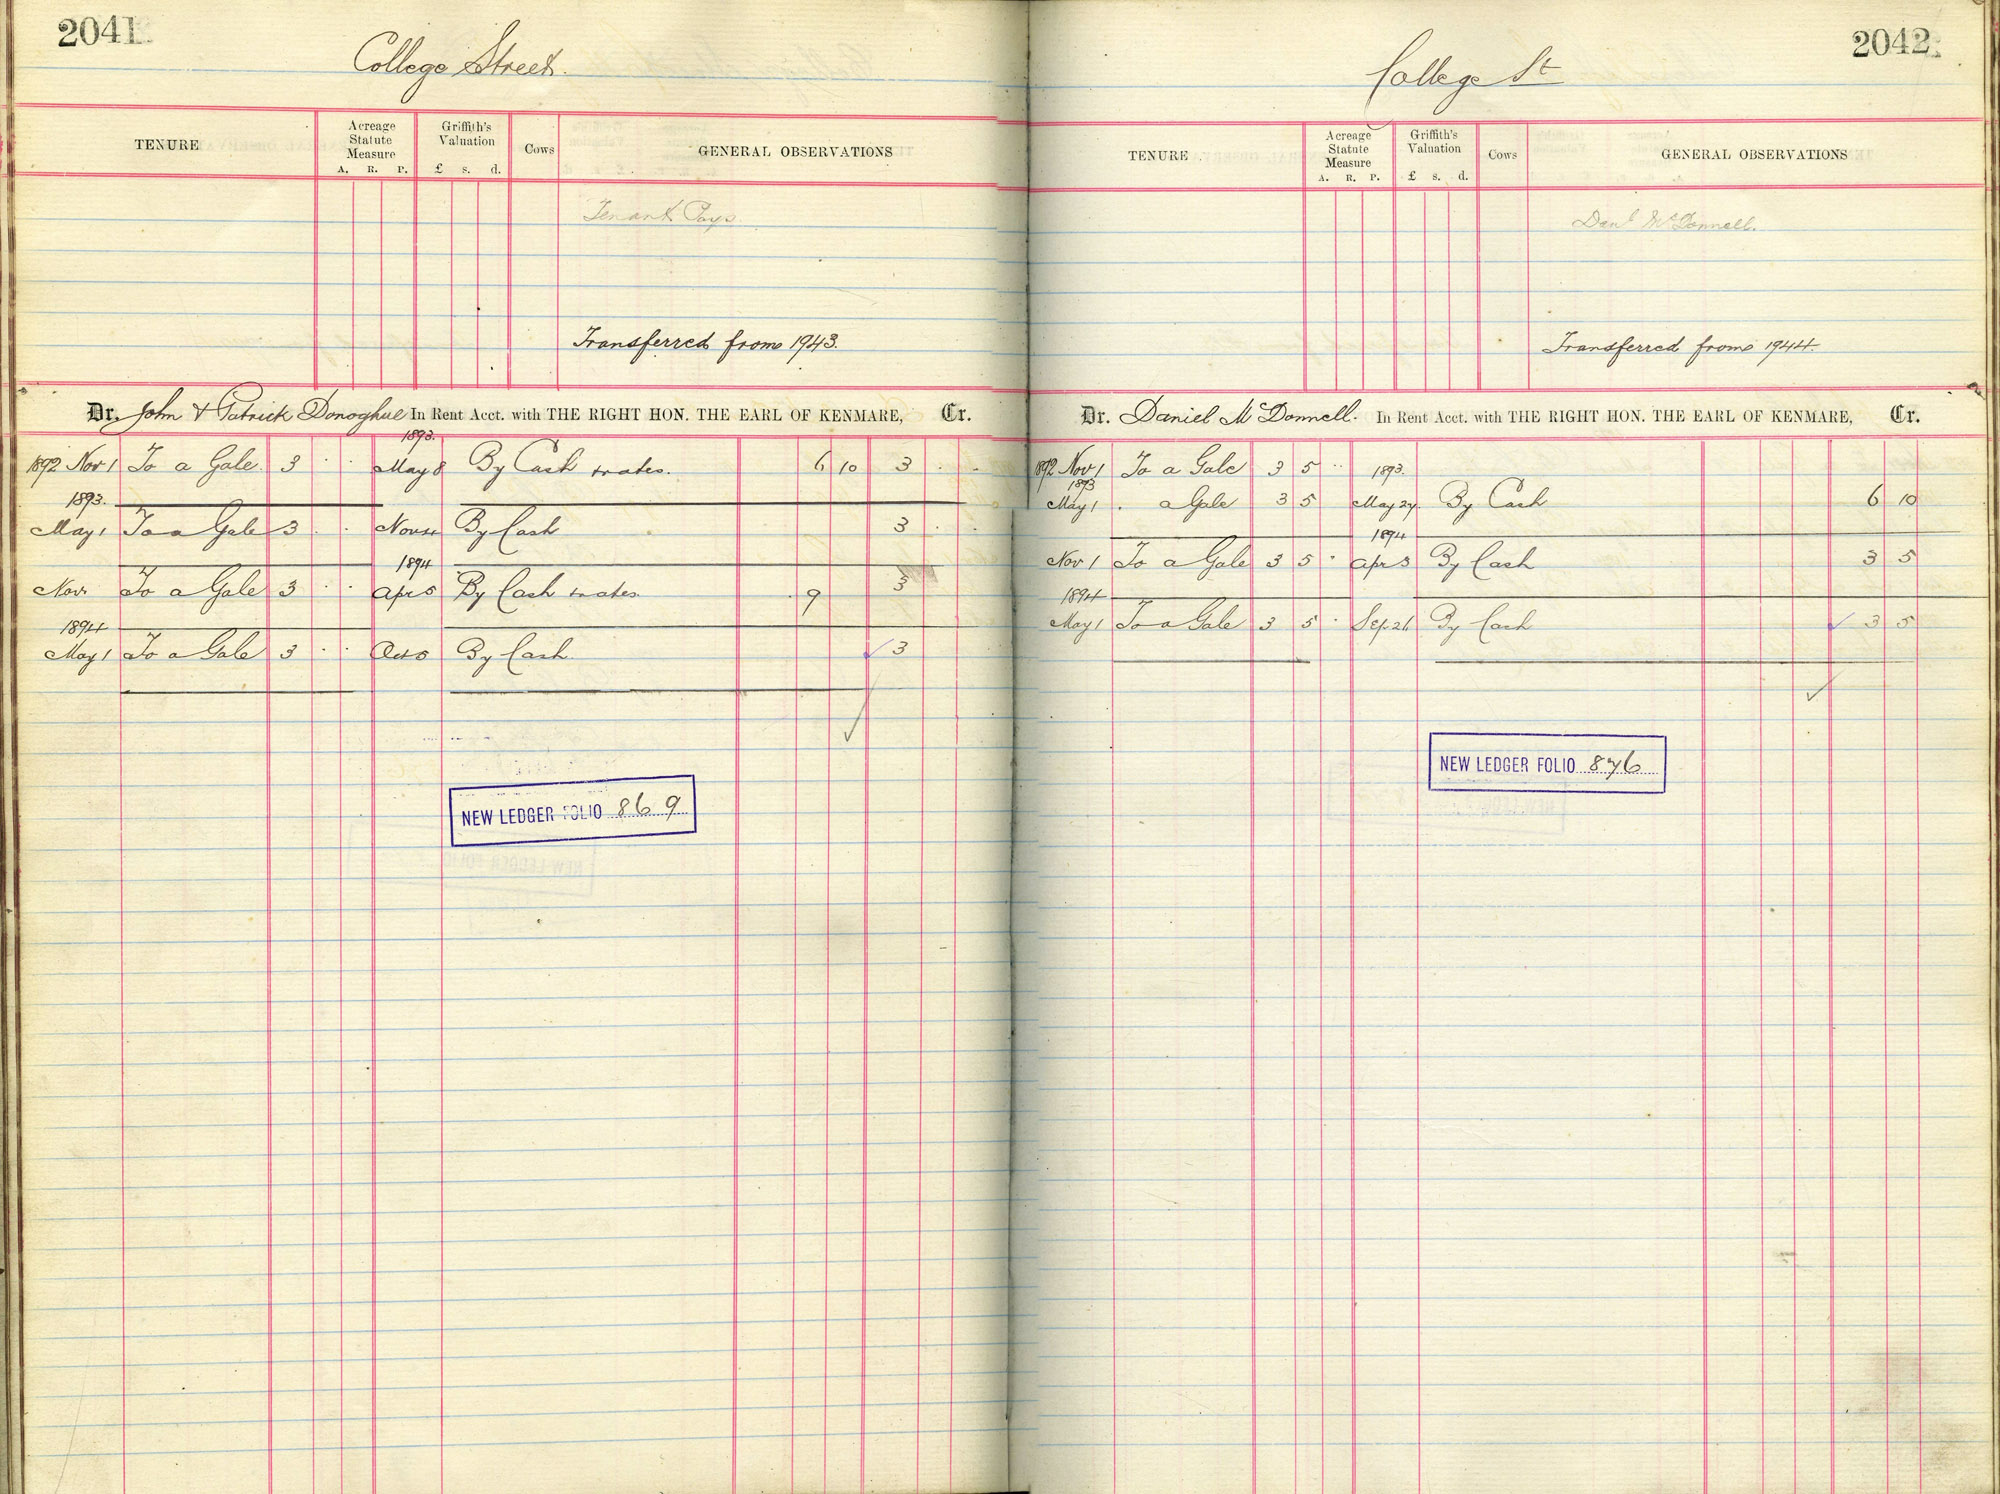 2041
College Street.
TENURE
Acreage Statute Measure
Griffith's Valuation
Cows
GENERAL OBSERVATIONS
A. R. P. £ s. d.
Tenant Pays
Transferred from 1943.
Dr. John & Patrick Donoghue In Rent Acct. with THE RIGHT HON. THE EARL OF KENMARE, Cr.
1893.
1892 Nov 1 To a Gale 3 . . May 8 By Cash & rates. 6 10 3 . .
1893.
May 1 To a Gale 3 . . Nov 4 By Cash 3 . .
1894
Nov To a Gale 3 . . Apr 5 By Cash & rates 9 3
1894
May 1 To a Gale 3 . . Oct 5 By Cash 3
NEW LEDGER FOLIO 869
2042
College St
TENURE
Acreage Statute Measure
Griffith's Valuation
Cows
GENERAL OBSERVATIONS
A. R. P. £ s. d.
Danl McDonnell.
Transferred from 1944.
Dr. Daniel McDonnell. In Rent Acct. with THE RIGHT HON. THE EARL OF KENMARE, Cr.
1892 Nov 1 To a Gale 3 5 . . 1893.
1893
May 1 . a Gale 3 5 May 27 By Cash 6 10
1894
Nov 1 To a Gale 3 5 . Apr 5 By Cash 3 5
1894
May 1 To a Gale 3 5 . Sep. 21 By Cash 3 5
NEW LEDGER FOLIO 876